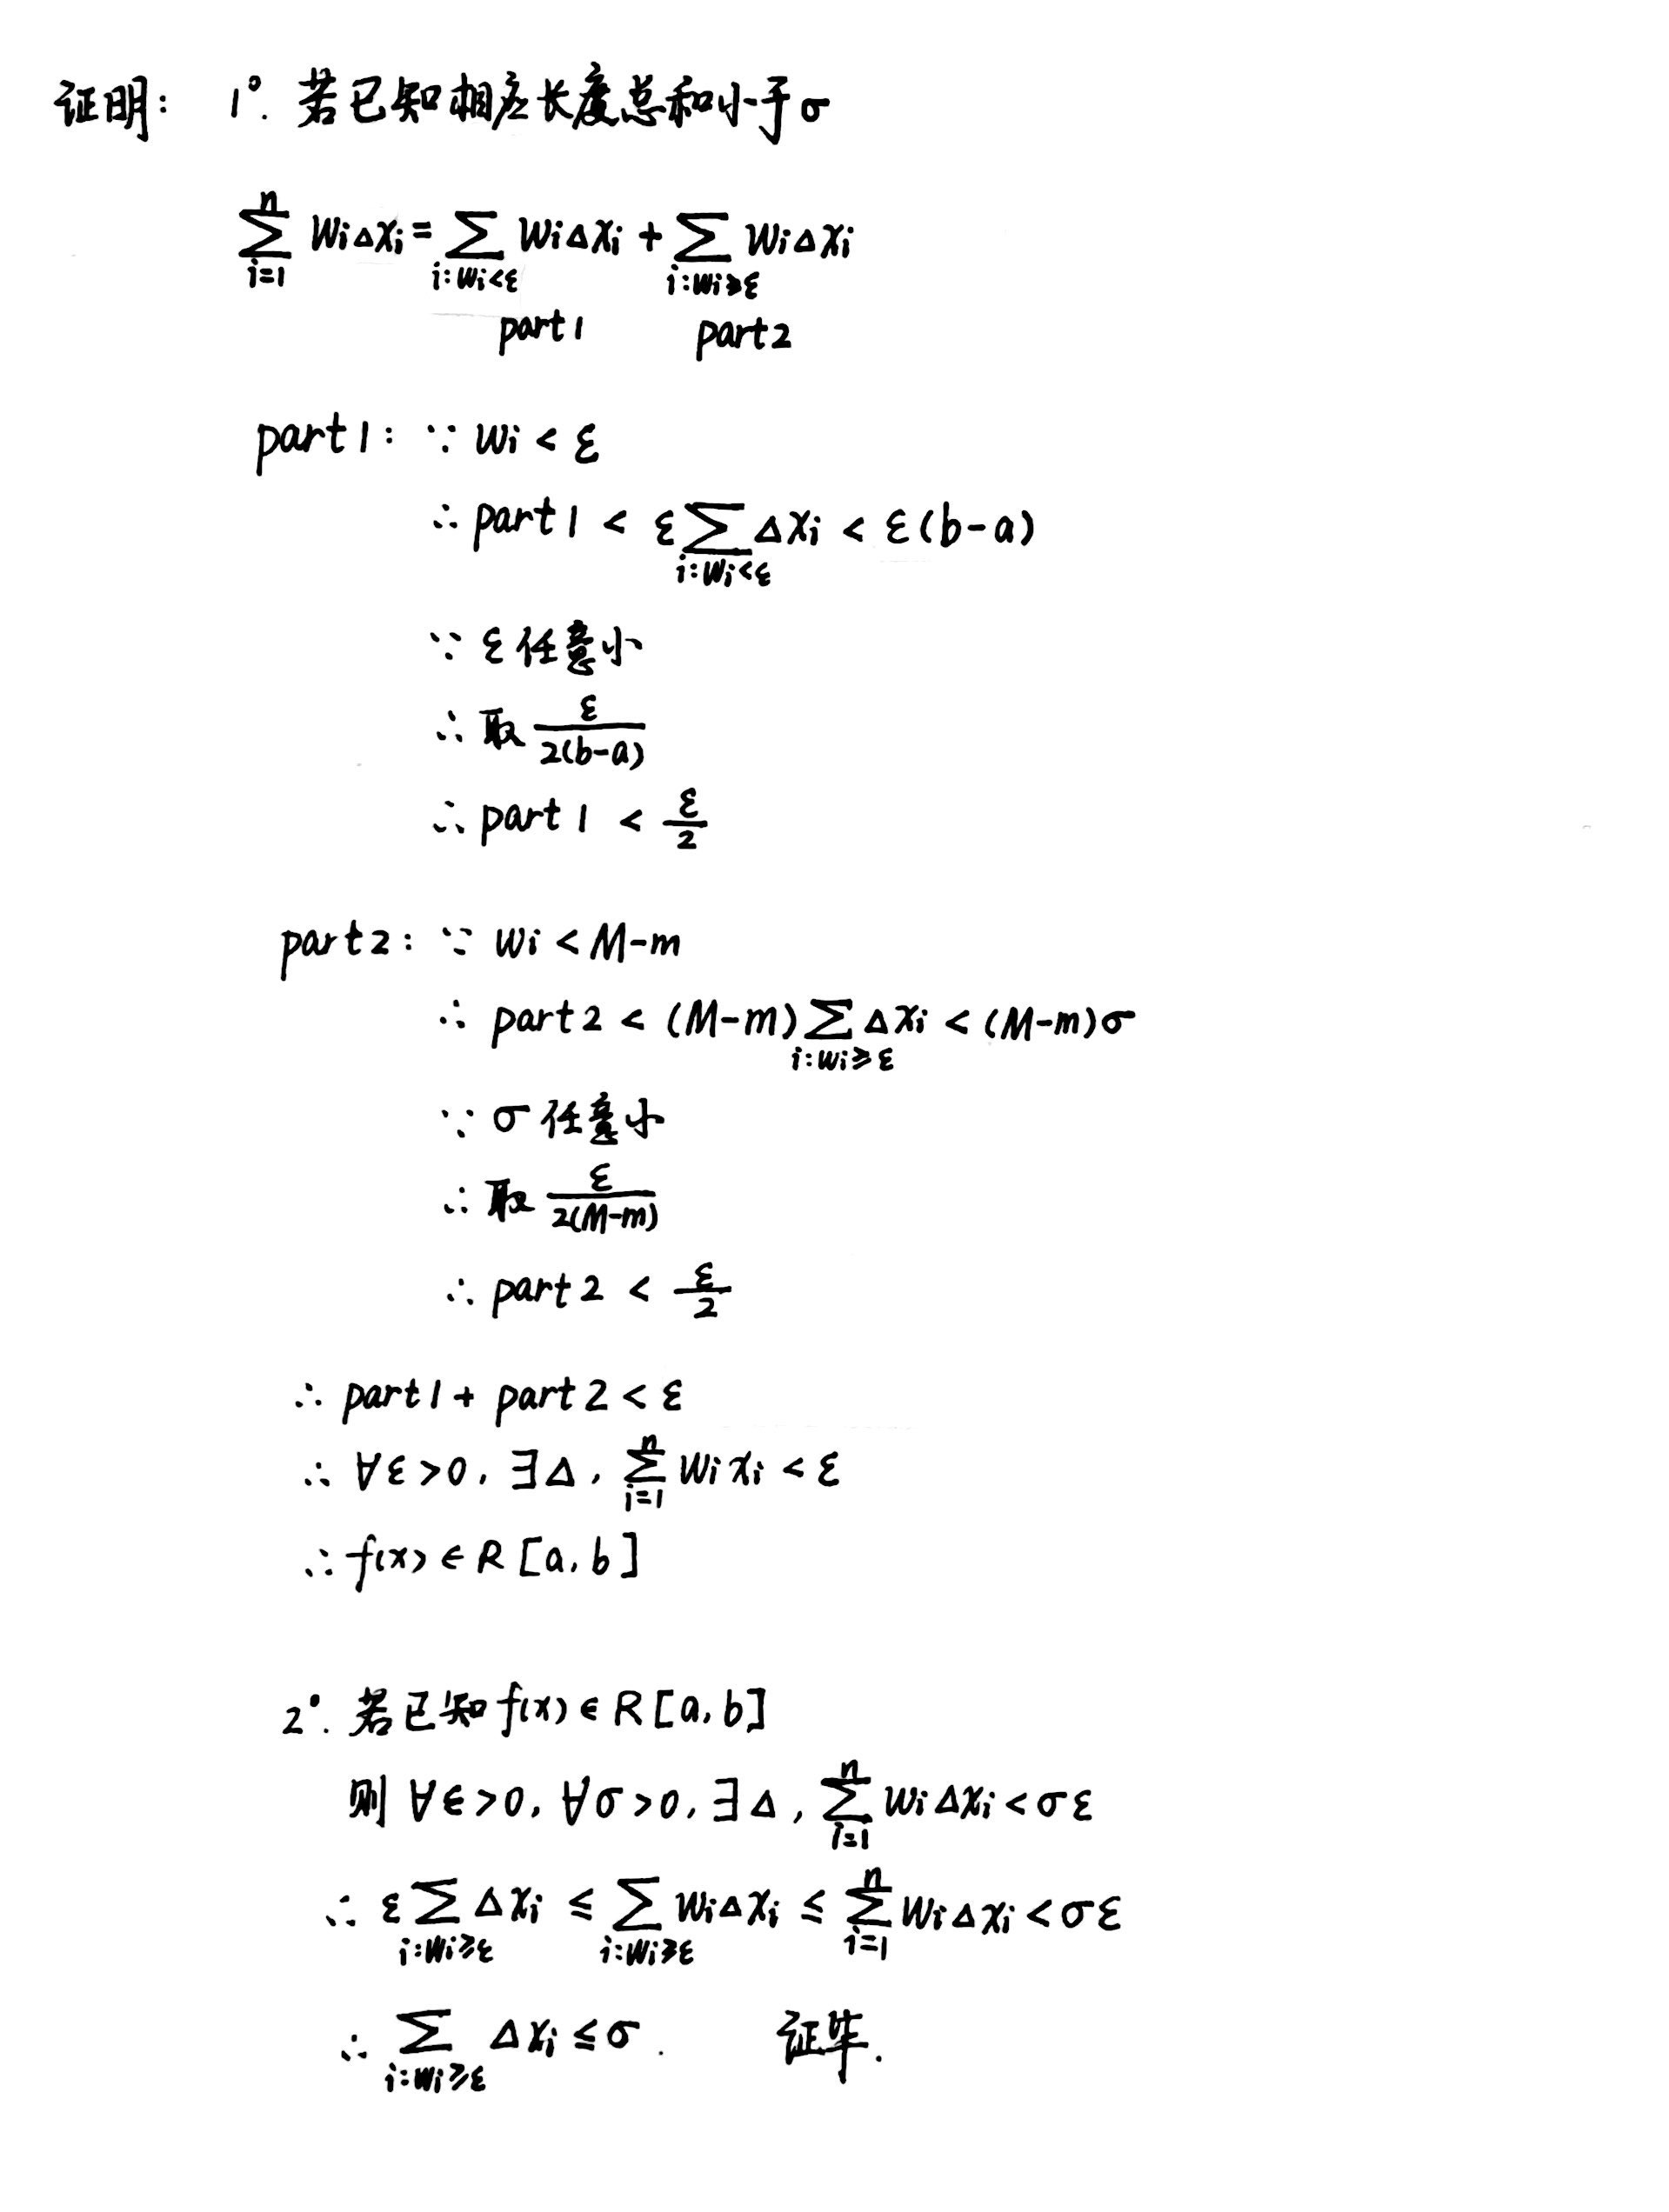 证明: 1°. 若已知相应长度总和小于σ
∑_{i=1}^{n} WiΔxi = ∑_{i:Wi<ε} WiΔxi + ∑_{i:Wi≥ε} WiΔxi
part1 part2
part1: ∵ Wi < ε
∴ part1 < ε∑_{i:Wi<ε} Δxi < ε(b-a)
∵ ε任意小
∴ 取 ε/2(b-a)
∴ part1 < ε/2
part2: ∵ Wi < M-m
∴ part2 < (M-m)∑_{i:Wi≥ε} Δxi < (M-m)σ
∵ σ任意小
∴ 取 ε/2(M-m)
∴ part2 < ε/2
∴ part1 + part2 < ε
∴ ∀ε>0, ∃Δ, ∑_{i=1}^{n} Wi xi < ε
∴ f(x) ∈ R[a,b]
2°. 若已知f(x) ∈ R[a,b]
则 ∀ε>0, ∀σ>0, ∃Δ, ∑_{i=1}^{n} WiΔxi < σε
∴ ε∑_{i:Wi≥ε} Δxi ≤ ∑_{i:Wi≥ε} WiΔxi ≤ ∑_{i=1}^{n} WiΔxi < σε
∴ ∑_{i:Wi≥ε} Δxi ≤ σ. 证毕.